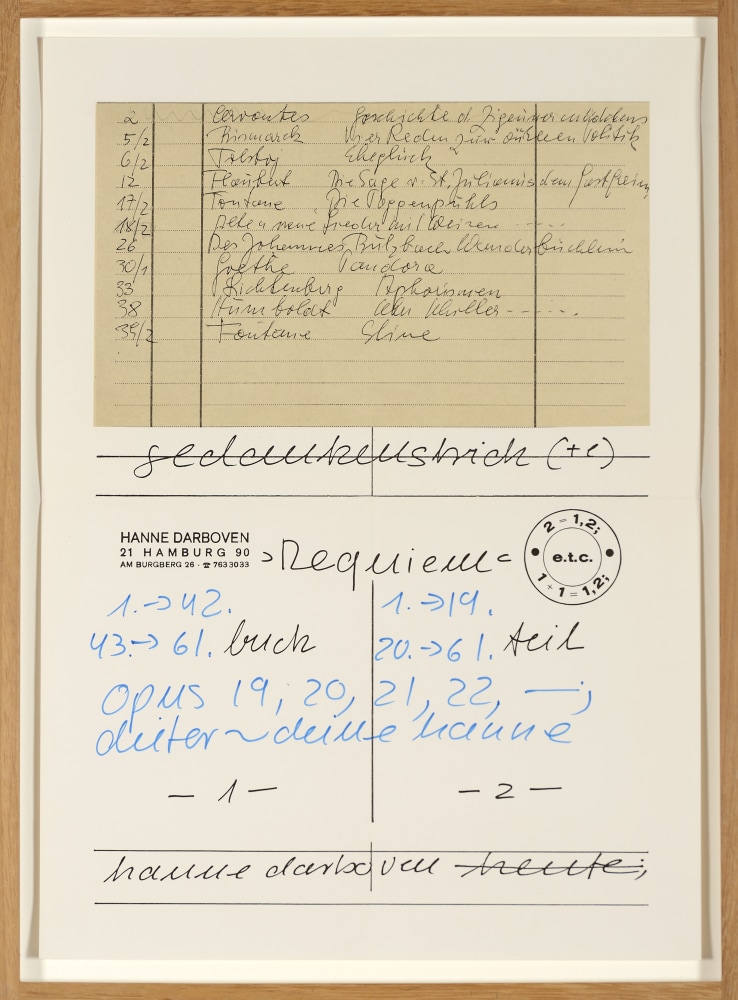 2 Cervantes Geschichte d. Zigeunermädchens
5/2 Bismarck Vier Reden zur äußeren Politik
6/2 Tolstoj Eheglück
12 Flaubert Die Sage v. St. Julianus dem Gastfreien
17/2 Fontane Die Poggenpuhls
18/2 Alte u neue Lieder mit Weisen -----
26 Des Johannes Butzbach Wanderbüchlein
30/1 Goethe Pandora
33 Lichtenberg Aphorismen
38 Humboldt über Schiller ------.
39/2 Fontane Stine
gedankenstrich (+e)
HANNE DARBOVEN
21 HAMBURG 90
AM BURGBERG 26 · ☎ 7633033
>Requiem<
2 = 1,2;
e.t.c.
1 + 1 = 1,2;
1.→42. 1.→19.
43.→61. buch 20.→61. teil
opus 19, 20, 21, 22, —;
dieter ~ deine hanne
— 1 — — 2 —
hanne darboven heute;